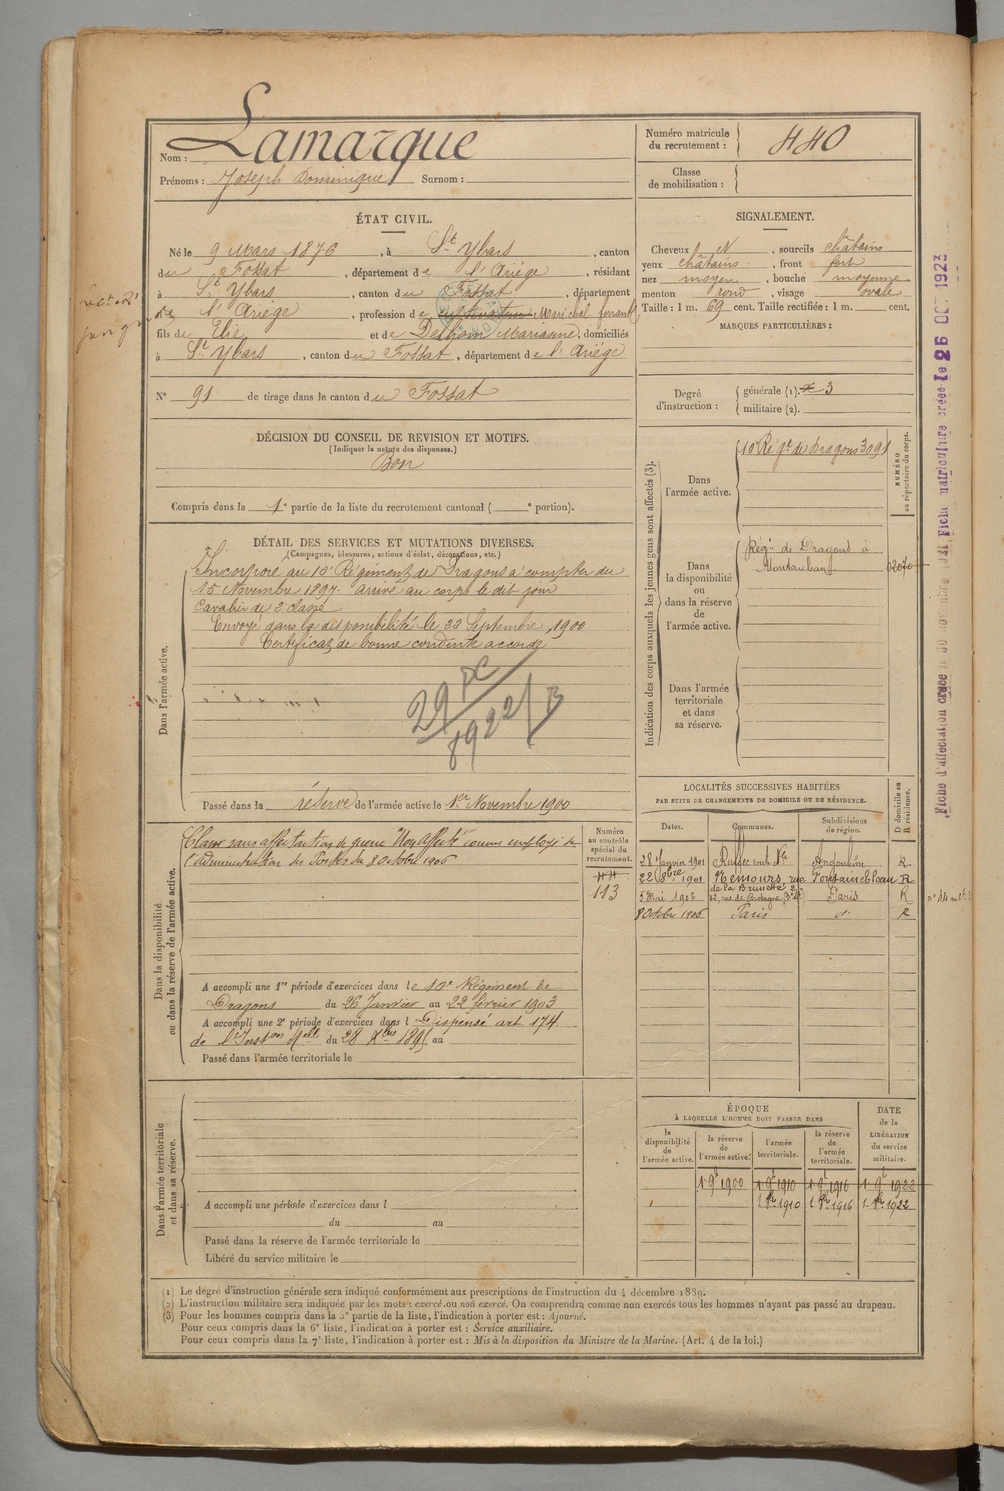 Nom : Lamarque
Prénoms : Joseph Dominique Surnom :
Numéro matricule
du recrutement : 440
Classe
de mobilisation :
ÉTAT CIVIL.
Né le 9 Mars 1876, à St Ybars, canton
du Fossat, département de l'Ariège, résidant
à St Ybars, canton du Fossat, département
de l'Ariège, profession de cultivateur Maréchal ferrant
fils de Elie et de Marianne, domiciliés
à St Ybars, canton du Fossat, département de l'Ariège
N° 91 de tirage dans le canton du Fossat
SIGNALEMENT.
Cheveux N, sourcils châtains
yeux châtains, front fort
nez moyen, bouche moyenne
menton rond, visage ovale
Taille : 1 m. 69 cent. Taille rectifiée : 1 m. cent.
MARQUES PARTICULIÈRES :
Degré
d'instruction :
générale (1). 3
militaire (2).
DÉCISION DU CONSEIL DE REVISION ET MOTIFS.
(Indiquer la nature des dispenses.)
Bon
Compris dans la 1e partie de la liste du recrutement cantonal ( e portion).
DÉTAIL DES SERVICES ET MUTATIONS DIVERSES.
(Campagnes, blessures, actions d'éclat, décorations, etc.)
Dans l'armée active.
Incorporé au 10e Régiment de Dragons à compter du
15 Novembre 1897. arrivé au corps le dit jour
Cavalier de 2e classe
Envoyé dans la disponibilité le 23 Septembre 1900
Certificat de bonne conduite accordé
Passé dans la réserve de l'armée active le 1er Novembre 1900
Indication des corps auxquels les jeunes gens sont affectés (3).
NUMÉRO
au répertoire du corps.
Dans
l'armée active.
10 Régt de Dragons 3091
Dans
la disponibilité
ou
dans la réserve
de
l'armée active.
Régt de Dragons à
Montauban
Dans l'armée
territoriale
et dans
sa réserve.
Fiche d'affectation créée le 30 novembre 1921
Fiche matriculaire créée le 26 OCT 1923
Dans la disponibilité
ou dans la réserve de l'armée active.
Classé sans affectation de guerre "Non Affecté" comme employé de
l'administration des Postes du 8 Octobre 1906
Numéro
au contrôle
spécial du
recrutement.
113
A accompli une 1re période d'exercices dans le 10e Régiment de
Dragons du 26 Janvier au 22 février 1903
A accompli une 2e période d'exercices dans l Dispensé art 174
de l'Inston Mlle du 28 Xbre 1895 au
Passé dans l'armée territoriale le
LOCALITÉS SUCCESSIVES HABITÉES
PAR SUITE DE CHANGEMENTS DE DOMICILE OU DE RÉSIDENCE.
Dates. Communes. Subdivisions
de région.
D domicile ou
R résidence.
28 Janvier 1901 Ruffec Angoulême R
22 8bre 1901 Nemours, rue Fontainebleau R
5 Mai 1906 62, rue de Bretagne Paris R
8 Octobre 1906 Paris d° R
Dans l'armée territoriale
et dans sa réserve.
A accompli une période d'exercices dans l
du au
Passé dans la réserve de l'armée territoriale le
Libéré du service militaire le
ÉPOQUE
A LAQUELLE L'HOMME DOIT PASSER DANS
DATE
de la
LIBÉRATION
du service
militaire.
la
disponibilité
de
l'armée active.
la réserve
de
l'armée active.
l'armée
territoriale.
la réserve
de
l'armée
territoriale.
1 9bre 1900 1 9bre 1910 1 9bre 1916 1 9bre 1922
1910 1916 1922
(1) Le degré d'instruction générale sera indiqué conformément aux prescriptions de l'instruction du 4 décembre 1889.
(2) L'instruction militaire sera indiquée par les mots : exercé ou non exercé. On comprendra comme non exercés tous les hommes n'ayant pas passé au drapeau.
(3) Pour les hommes compris dans la 5e partie de la liste, l'indication à porter est : Ajourné.
Pour ceux compris dans la 6e liste, l'indication à porter est : Service auxiliaire.
Pour ceux compris dans la 7e liste, l'indication à porter est : Mis à la disposition du Ministre de la Marine. (Art. 4 de la loi.)